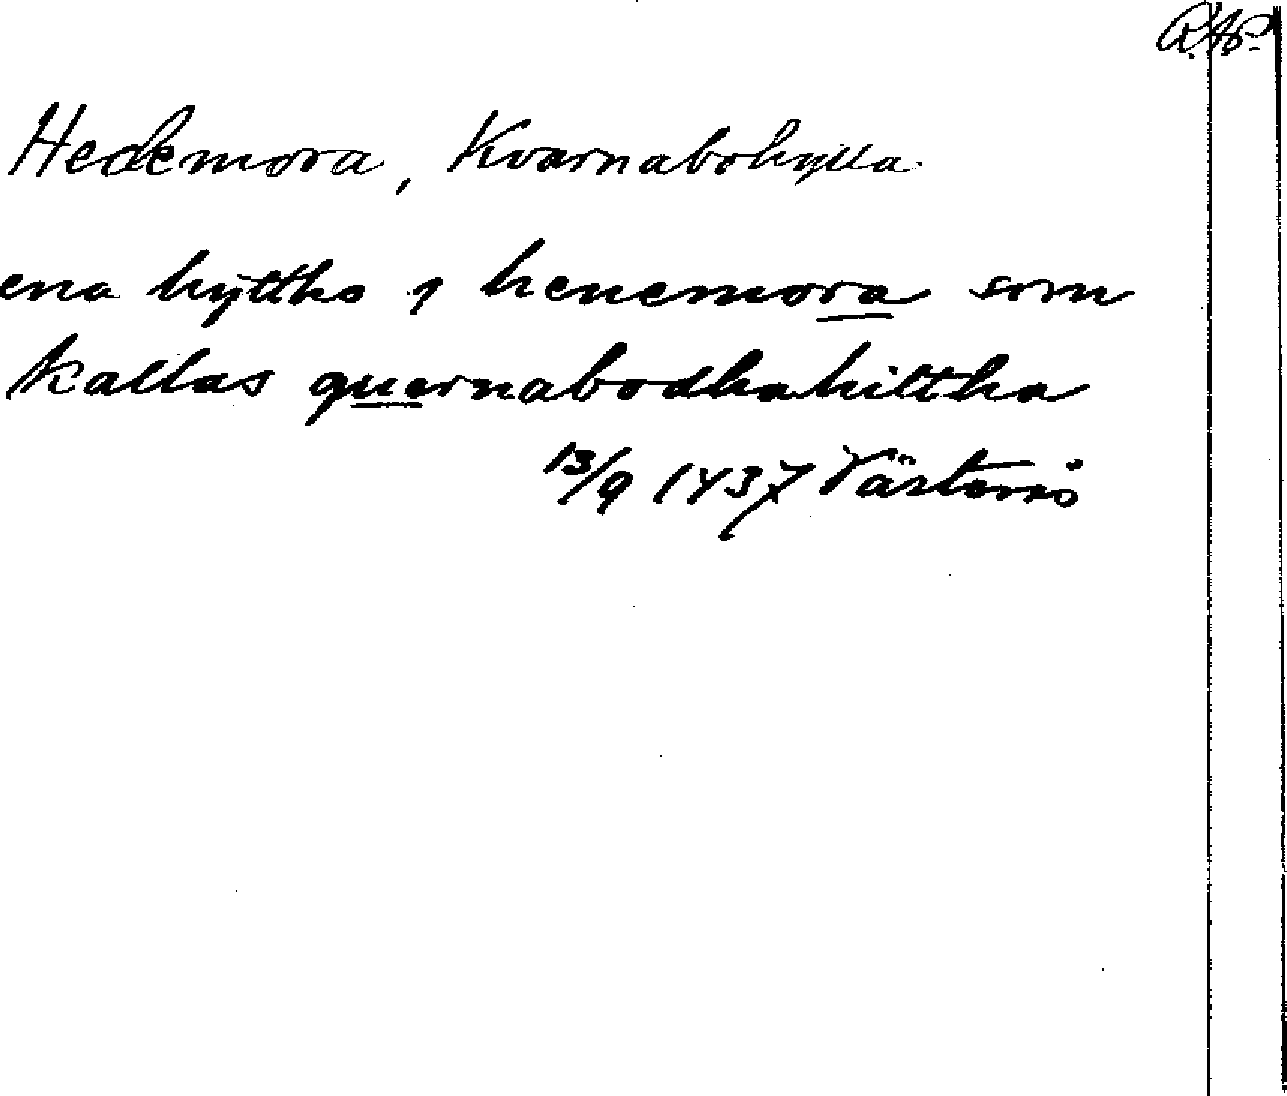 R.Ap.
Hedemora, Kvarnabohytta
ena hyttho j henemora som
kallas quernabodhahittha
13/9 1437 Västerås